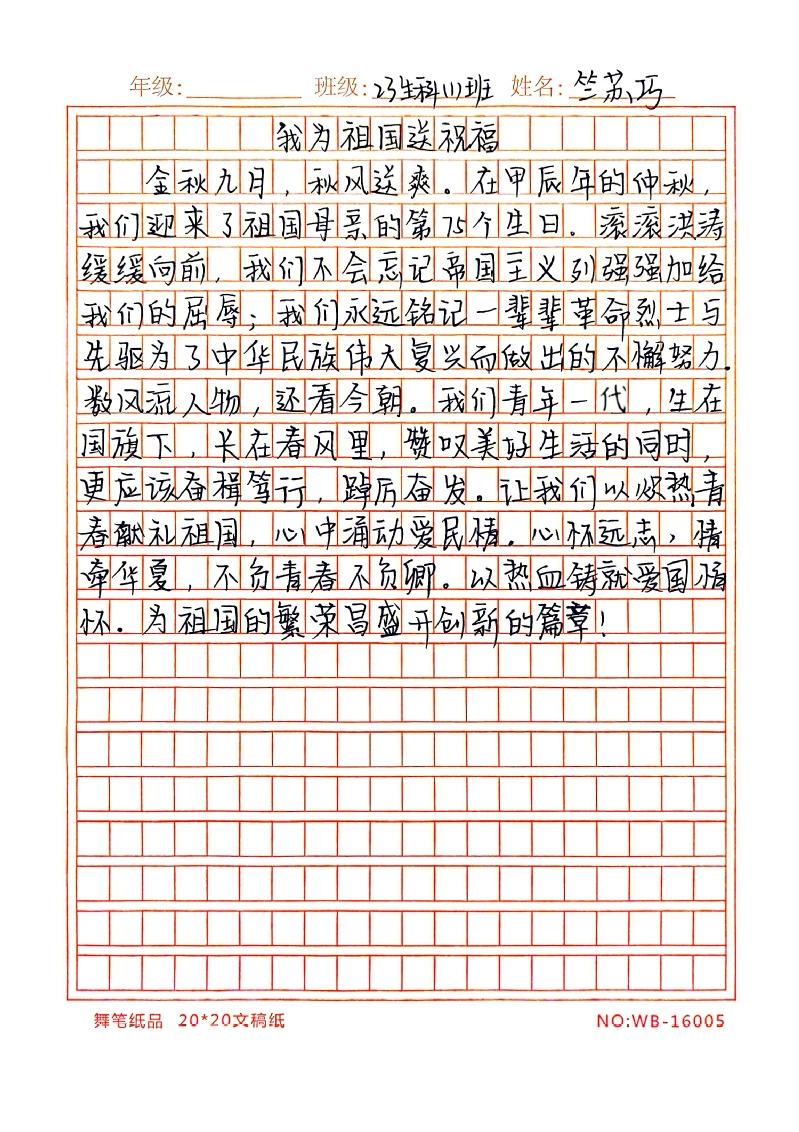 年级: 班级: 23生科(1)班 姓名: 竺苏巧
我为祖国送祝福
金秋九月，秋风送爽。在甲辰年的仲秋，
我们迎来了祖国母亲的第75个生日．滚滚洪涛
缓缓向前，我们不会忘记帝国主义列强强加给
我们的屈辱；我们永远铭记一辈辈革命烈士与
先驱为了中华民族伟大复兴而做出的不懈努力．
数风流人物，还看今朝。我们青年一代，生在
国旗下，长在春风里，赞叹美好生活的同时，
更应该奋楫笃行，踔厉奋发。让我们以炽热青
春献礼祖国，心中涌动爱民情．心怀远志，情
牵华夏，不负青春不负卿。以热血铸就爱国情
怀．为祖国的繁荣昌盛开创新的篇章！
舞笔纸品 20*20文稿纸 NO:WB-16005